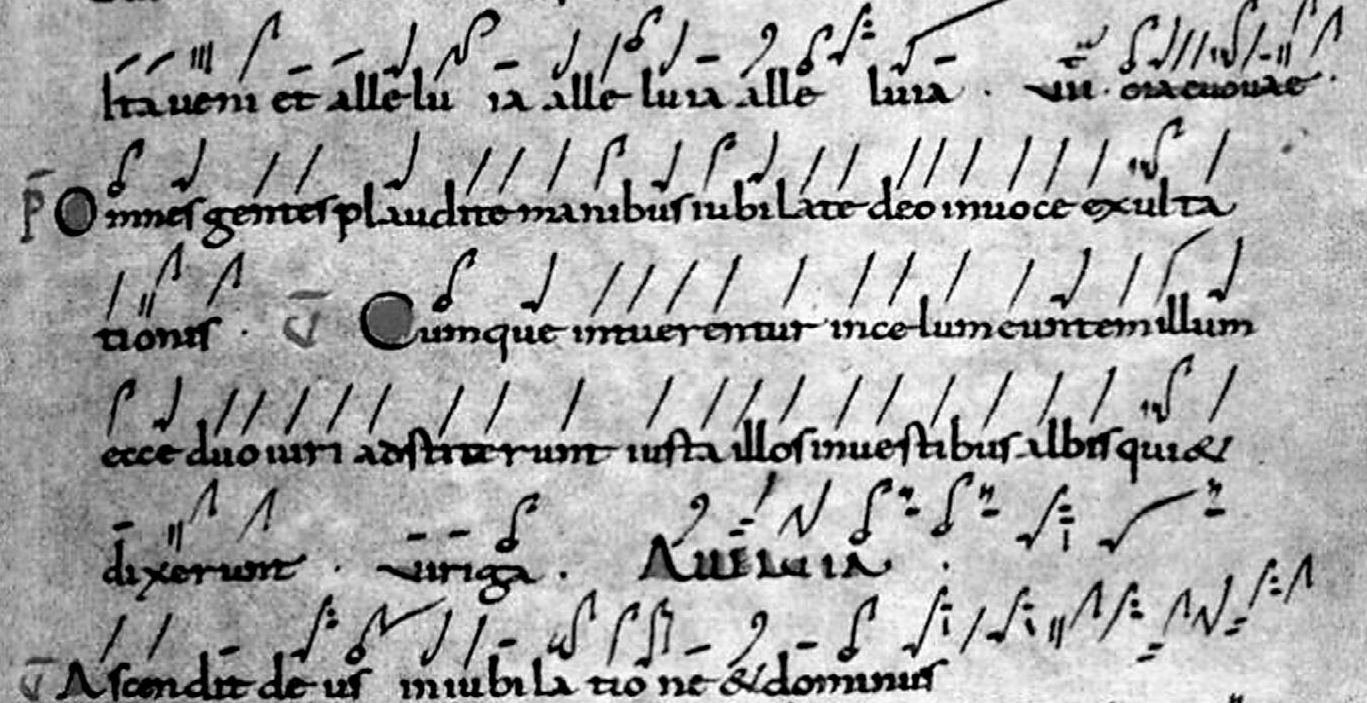 ltaueni et allelu ia alleluia alle luia . viii . oia euouae .
P Omnes gentes plaudite manibus iubilate deo inuoce exulta
tionis . V Cumque intuerentur incelum euntem illum
ecce duo uiri adstiterunt iusta illos inuestibus albis qui &
dixerunt . viri ga . Alleluia .
V Ascendit deus iniubila tio ne & dominus